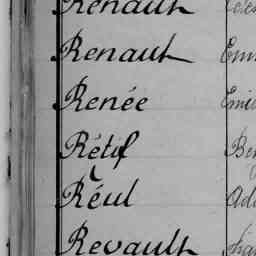 Renault
Renaut
Renée
Rétif Be
Réul Ad
Revault